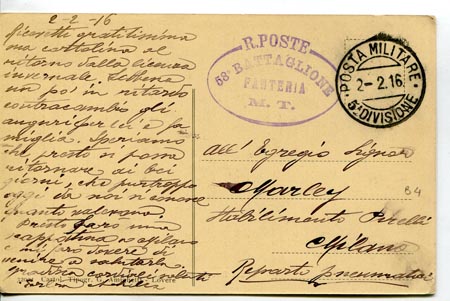 2-2-16
gratitissima
mia cartolina al
ritorno dalla licenza
invernale. Sebbene
un po' in ritardo
contraccambio gli
auguri per lei e fa
miglia. Speriamo
che presto si possa
ritornare di bei
giorni, che purtroppo
oggi da noi si
Presto farò una
a Milano
e mi
venire a salutarla
cordiali saluti
R. POSTE
58° BATTAGLIONE
FANTERIA
M. T.
POSTA MILITARE
2-2.16
5ª DIVISIONE
All' Egregio Signor
Marley
84
Stabilimento Pirelli
Milano
Reparto pneumatici
Cartol. Tipogr. G. - Lovere